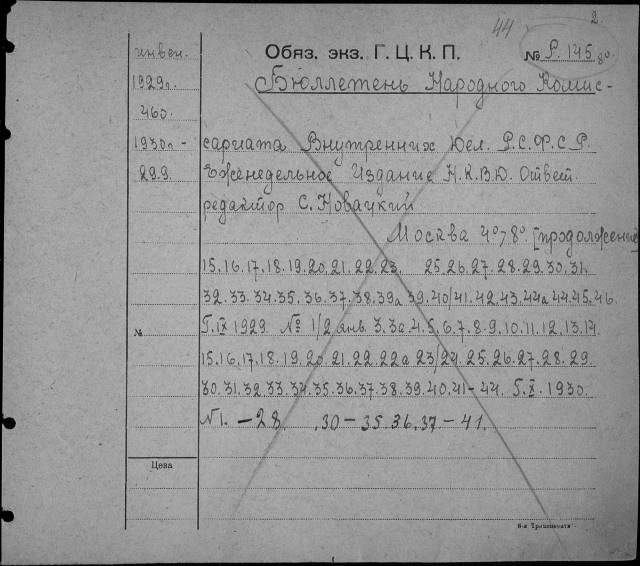 44 2
инвен. Обяз. экз. Г. Ц. К. П. № Р. 145 80
1929г. Бюллетень Народного Комис-
460.
1930г - сариата Внутренних Дел. Р.С.Ф.С.Р.
299. Еженедельное Издание Н.К.В.Д. Ответ.
редактор С. Новацкий
Москва 4°, 8°. [продолжение]
15.16.17.18.19.20.21.22.23. 25.26.27.28.29.30.31.
32.33.34.35.36.37.38.39а 39.40/41.42.43.44а 44.45.46.
№ Г. IX 1929. № 1/2 янв 3.3а.4.5.6.7.8-9.10.11.12.13.14.
15.16.17.18.19.20.21.22.22а 23/24.25.26.27.28.29.
30.31.32.33.34.35.36.37.38.39.40.41-44. Г. X. 1930.
№ 1. - 28. ,30 - 35.36.37 - 41.
Цена